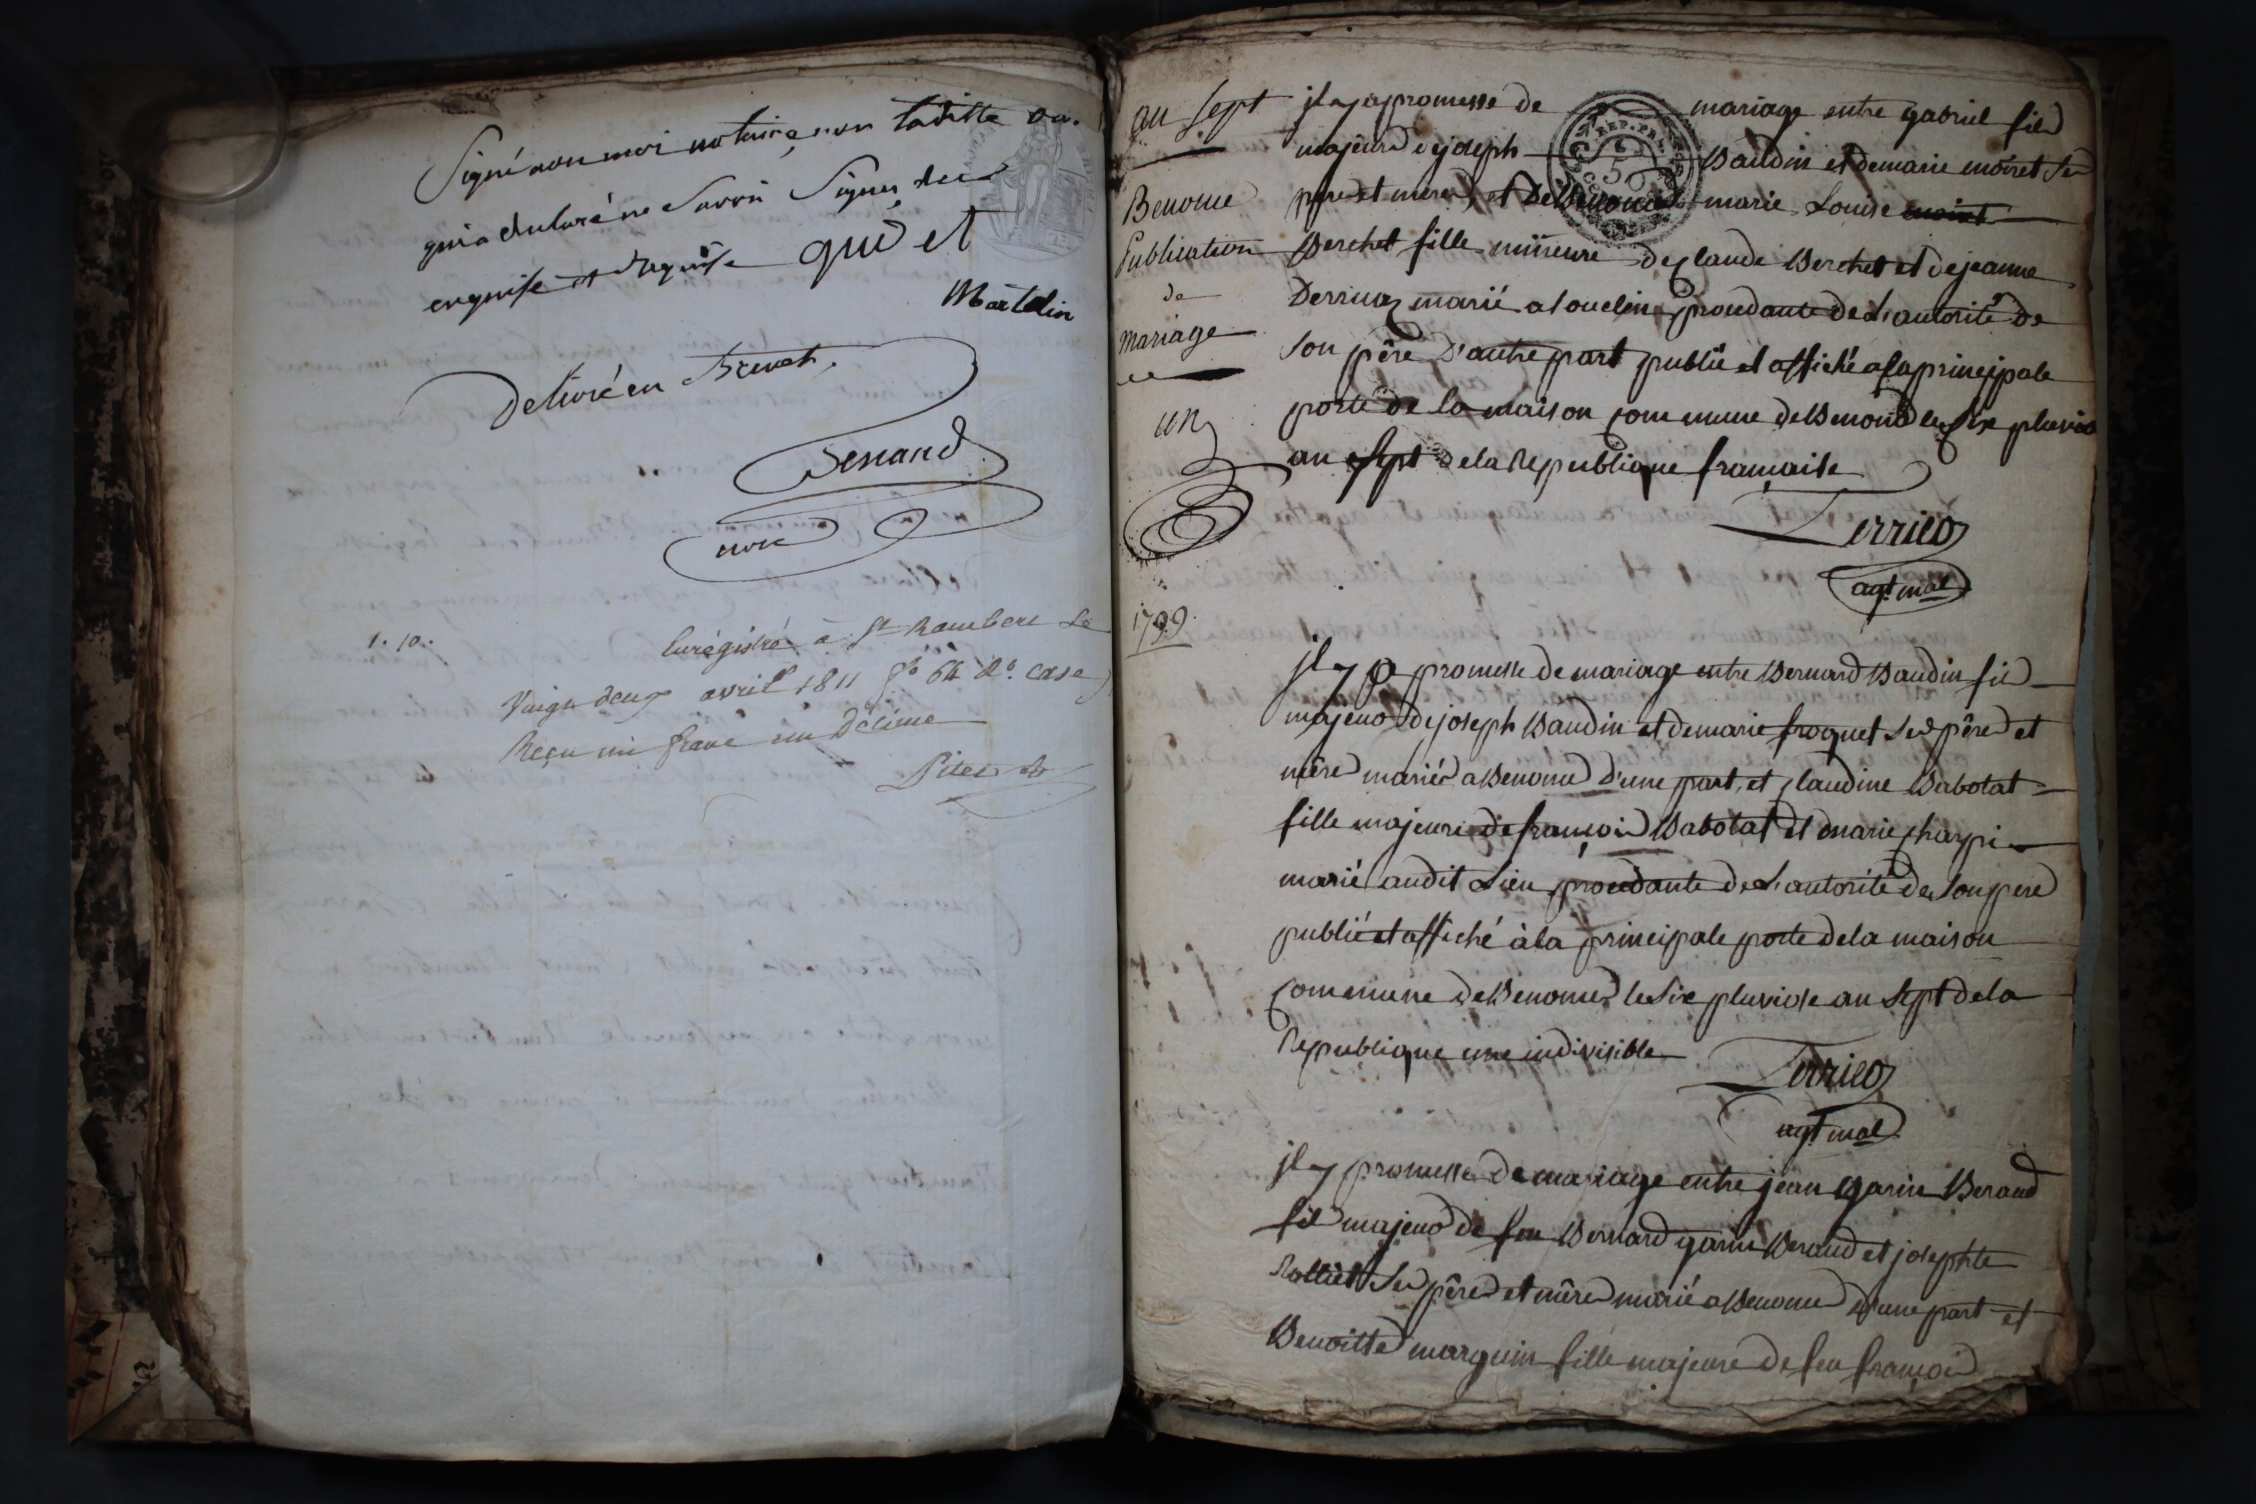 Signé non moi notaire, non laditte
qui a declaré ne Savoir Signer, de ce
enquise et Requise que et
Martelin
Delivré en Brevet.
Benand
nore
1. 10.
Enregistré à St Rambert Le
Vingt deux avril 1811 fo 64 Ro. case
Reçu un franc un Décime
an sept
Benonce
Publication
de
mariage
un
1799.
jl y a promesse de mariage entre gabriel fils
majeur de joseph Baudin et de marie moiret Ses
pere et mere, et De Benonce marie Louise moiret
Berchet fille mineure de claude Berchet et de jeanne
Derrias marié a Souclin procedante de L'autorité de
Son pêre D'autre part publié et affiché a la principale
porte de la maison commune de Benonce le Six pluviose
an Sept de la Republique française
Derrias
agt. mal
jl y a promesse de mariage entre Bernard Baudin fils
majeur de joseph Baudin et de marie froquet Ses pêre et
mêre mariés a Benonce d'une part, et claudine Babolat
fille majeure de françois Babolat et marie charpi
marié audit Lieu, procedante de L'autorité de Son pere
publié et affiché à la principale porte de la maison
commune de Benonce, le Six pluviose an Sept de la
Republique une indivisible
Derrias
agt. mal
jl y promesse de mariage entre jean garin Beraud
fils majeur de feu Bernard garin Beraud et josephte
Rolliet Ses pêre et mêre marié a Benonce d'une part et
Benoitte marguin fille majeure de feu françois